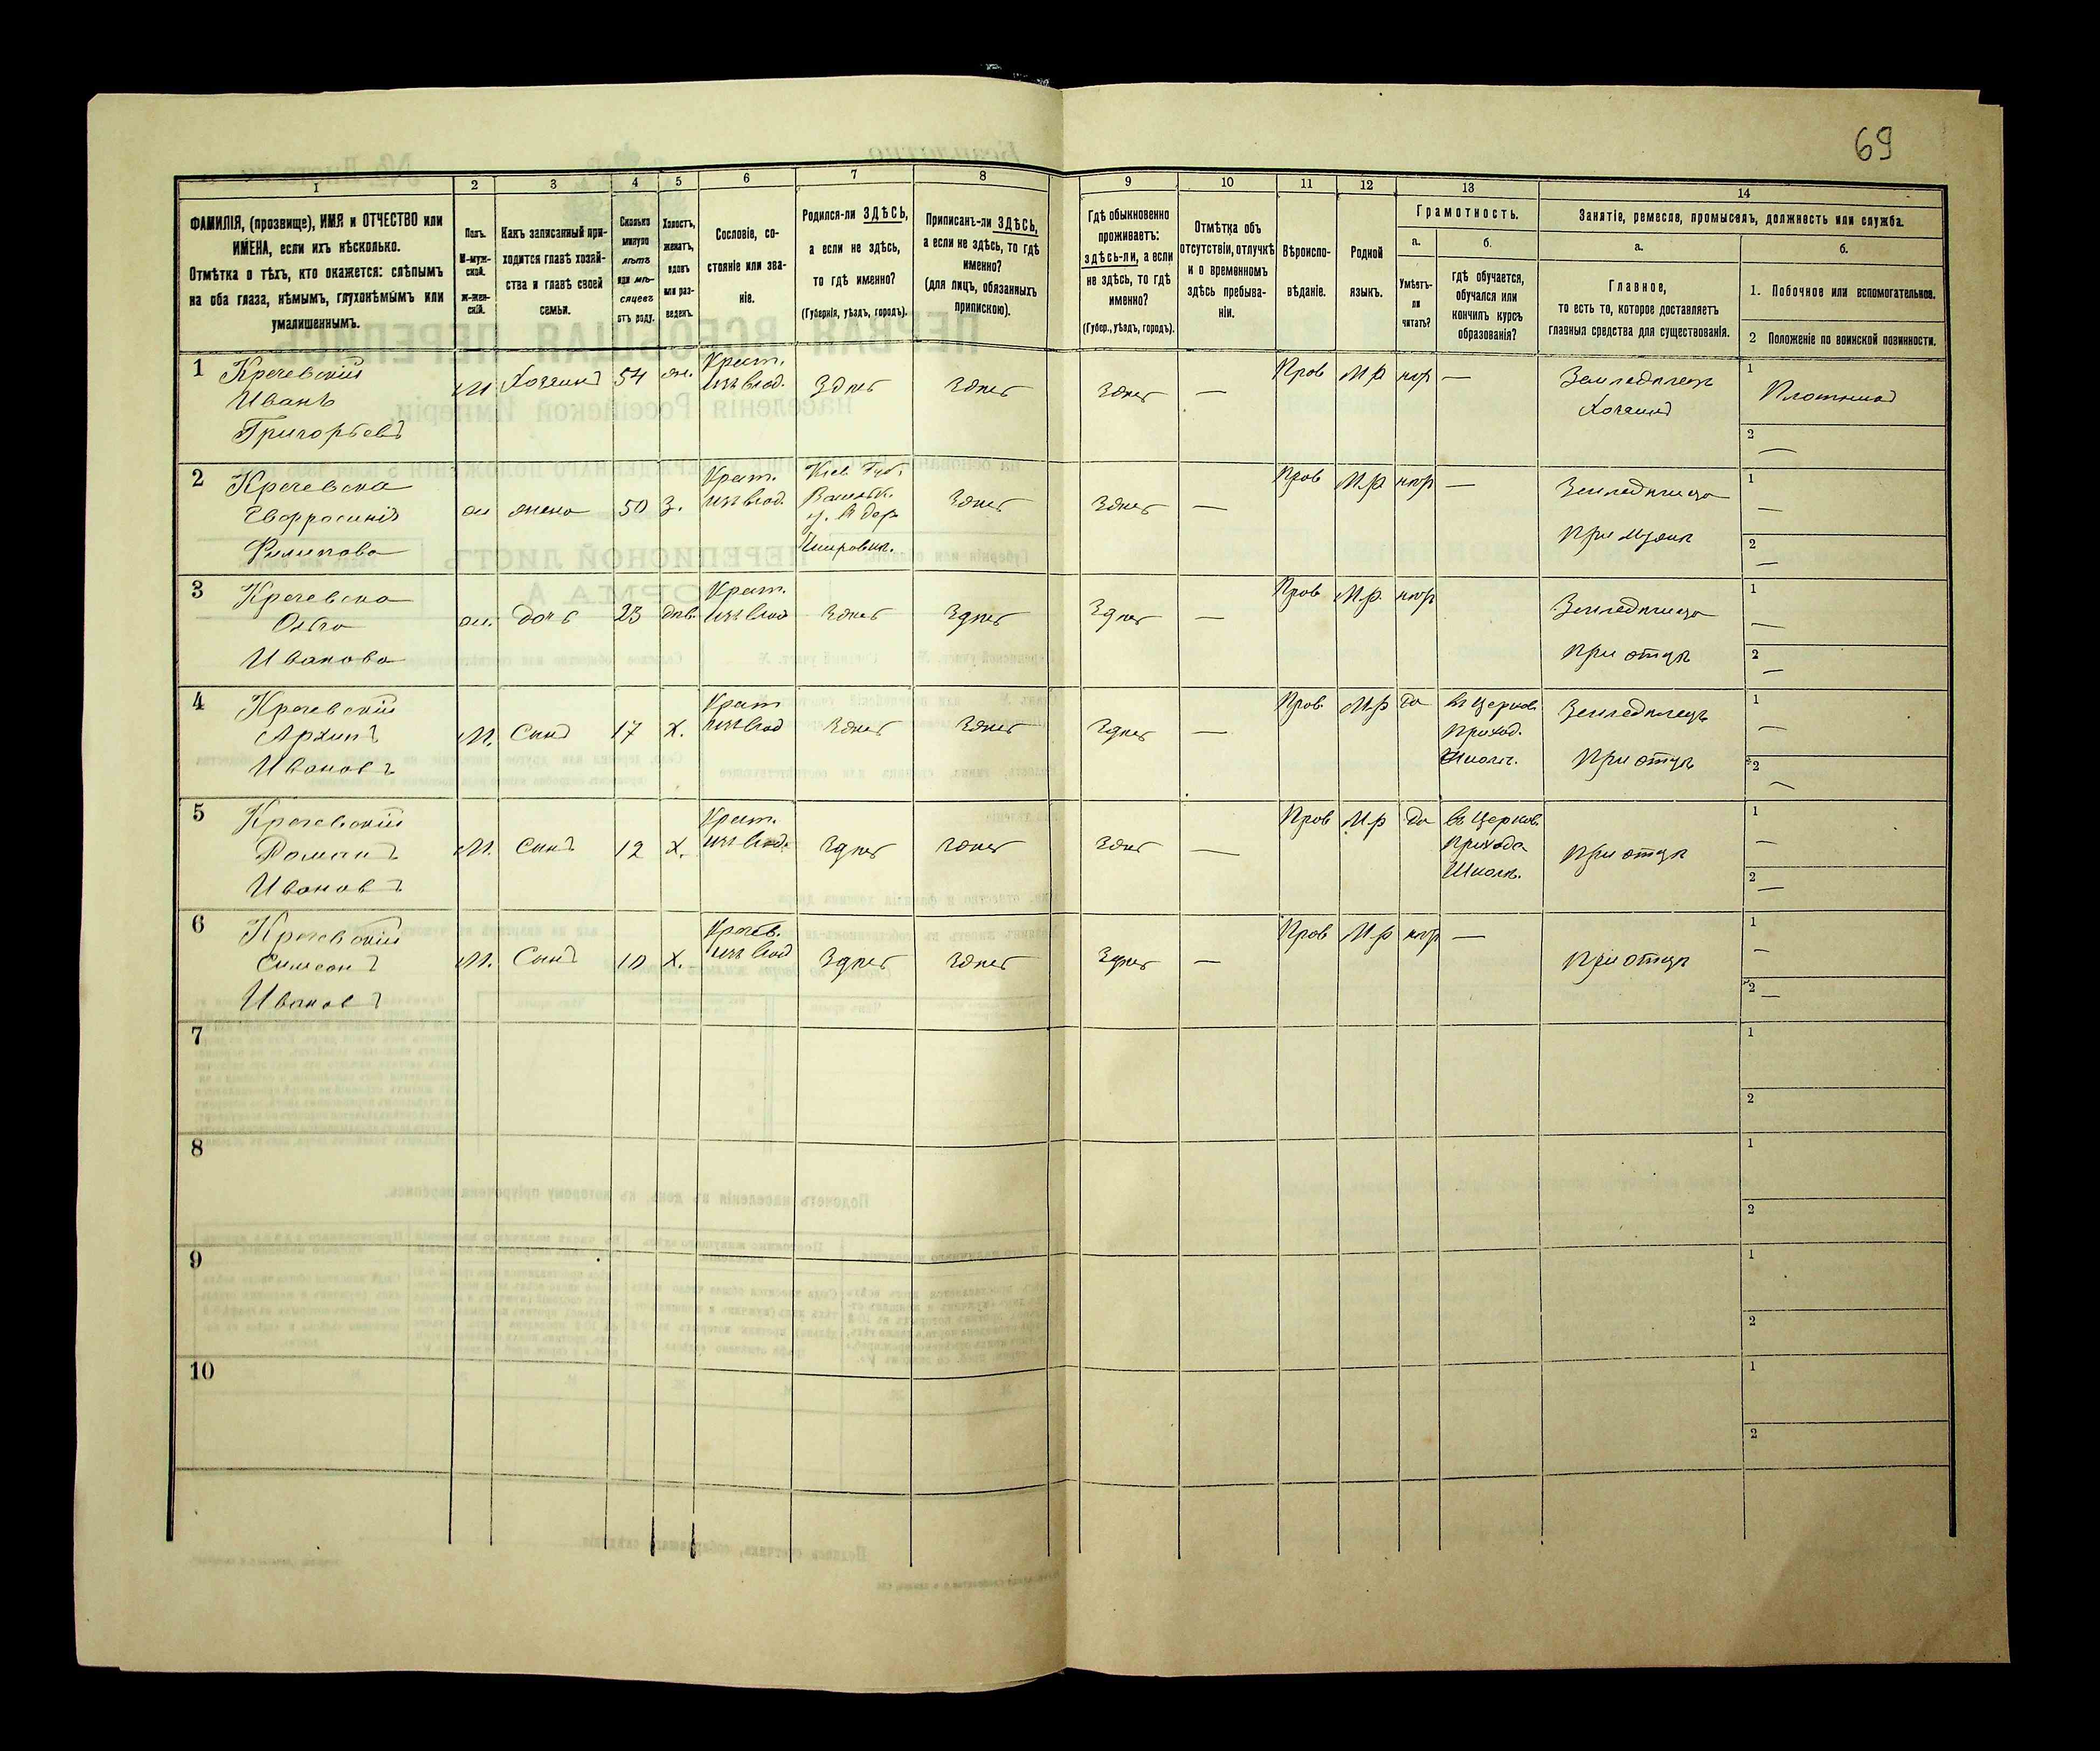 69
1 2 3 4 5 6 7 8 9 10 11 12 13 14
ФАМИЛІЯ, (прозвище), ИМЯ и ОТЧЕСТВО или
ИМЕНА, если ихъ нѣсколько.
Отмѣтка о тѣхъ, кто окажется: слѣпымъ
на оба глаза, нѣмымъ, глухонѣмымъ или
умалишеннымъ.
Полъ.
М-муж-
ской.
ж-жен-
скій.
Какъ записанный при-
ходится главѣ хозяй-
ства и главѣ своей
семьи.
Сколько
минуло
лѣтъ
или мѣ-
сяцевъ
отъ роду.
Холостъ,
женатъ,
вдовъ
или раз-
веденъ.
Сословіе, со-
стояніе или зва-
ніе.
Родился-ли ЗДѢСЬ,
а если не здѣсь,
то гдѣ именно?
(Губернія, уѣздъ, городъ).
Приписанъ-ли ЗДѢСЬ,
а если не здѣсь, то гдѣ
именно?
(для лицъ, обязанныхъ
припискою).
Гдѣ обыкновенно
проживаетъ:
здѣсь-ли, а если
не здѣсь, то гдѣ
именно?
(Губер., уѣздъ, городъ).
Отмѣтка объ
отсутствіи, отлучкѣ
и о временномъ
здѣсь пребыва-
ніи.
Вѣроиспо-
вѣданіе.
Родной
языкъ.
Грамотность.
а.
Умѣетъ-
ли
читать?
б.
гдѣ обучается,
обучался или
кончилъ курсъ
образованія?
Занятіе, ремесло, промыселъ, должность или служба.
а.
Главное,
то есть то, которое доставляетъ
главныя средства для существованія.
б.
1. Побочное или вспомогательное.
2 Положеніе по воинской повинности.
1
Кречевскій
Иванъ
Григорьевъ
М
Хозяинъ
54
жен.
Крест.
изъ влад.
Здѣсь
Здѣсь
Здѣсь
—
Прав
М р
нѣтъ
—
Земледѣлецъ
Хозяинъ
1
Плотникъ
2
—
2
Кречевска
Евфросинія
Филипова
ж
жена
50
З.
Крест.
изъ влад.
Кіев. Губ.
Васильк.
у.
Здѣсь
Здѣсь
—
Прав
М.р
нѣтъ
—
Земледѣлица
при мужѣ
1
—
2
—
3
Кречевска
Ольга
Иванова
ж.
дочь
23
дѣв.
Крест.
изъ влад
Здѣсь
Здѣсь
Здѣсь
—
Прав
М.р.
нѣтъ
Земледѣлица
при отцѣ
1
—
2
—
4
Кречевскій
Архипъ
Ивановъ
М.
Сынъ
17
Х.
Крест
изъ влад
Здѣсь
Здѣсь
Здѣсь
—
Прав.
М р
да
въ Церков.
Приход.
Школѣ.
Земледѣлецъ
При отцѣ
1
—
2
—
5
Кречевскій
Романъ
Ивановъ
М.
Сынъ
12
Х.
Крест.
изъ влад.
Здѣсь
Здѣсь
Здѣс
—
Прав
М р
да
въ Церков.
Прихода
Школѣ.
при отцѣ
1
—
2
—
6
Кречевскій
Симеонъ
Ивановъ
М.
Сынъ
10
Х.
изъ влад
Здѣсь
Здѣсь
Здѣсь
—
Прав
М р
нѣтъ
—
при отцѣ
1
—
2
—
7
1
2
8
1
2
9
1
2
10
1
2